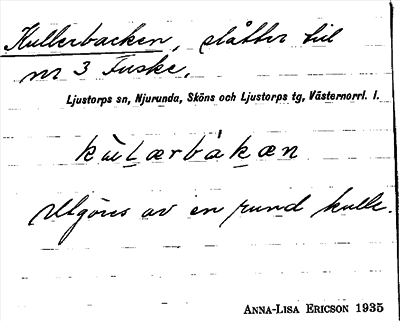 Kullerbacken, slåtter till
nr 3 Fuske.
Ljustorps sn, Njurunda, Sköns och Ljustorps tg, Västernorrl. l.
Utgöres av en rund kulle.
ANNA-LISA ERICSON 1935